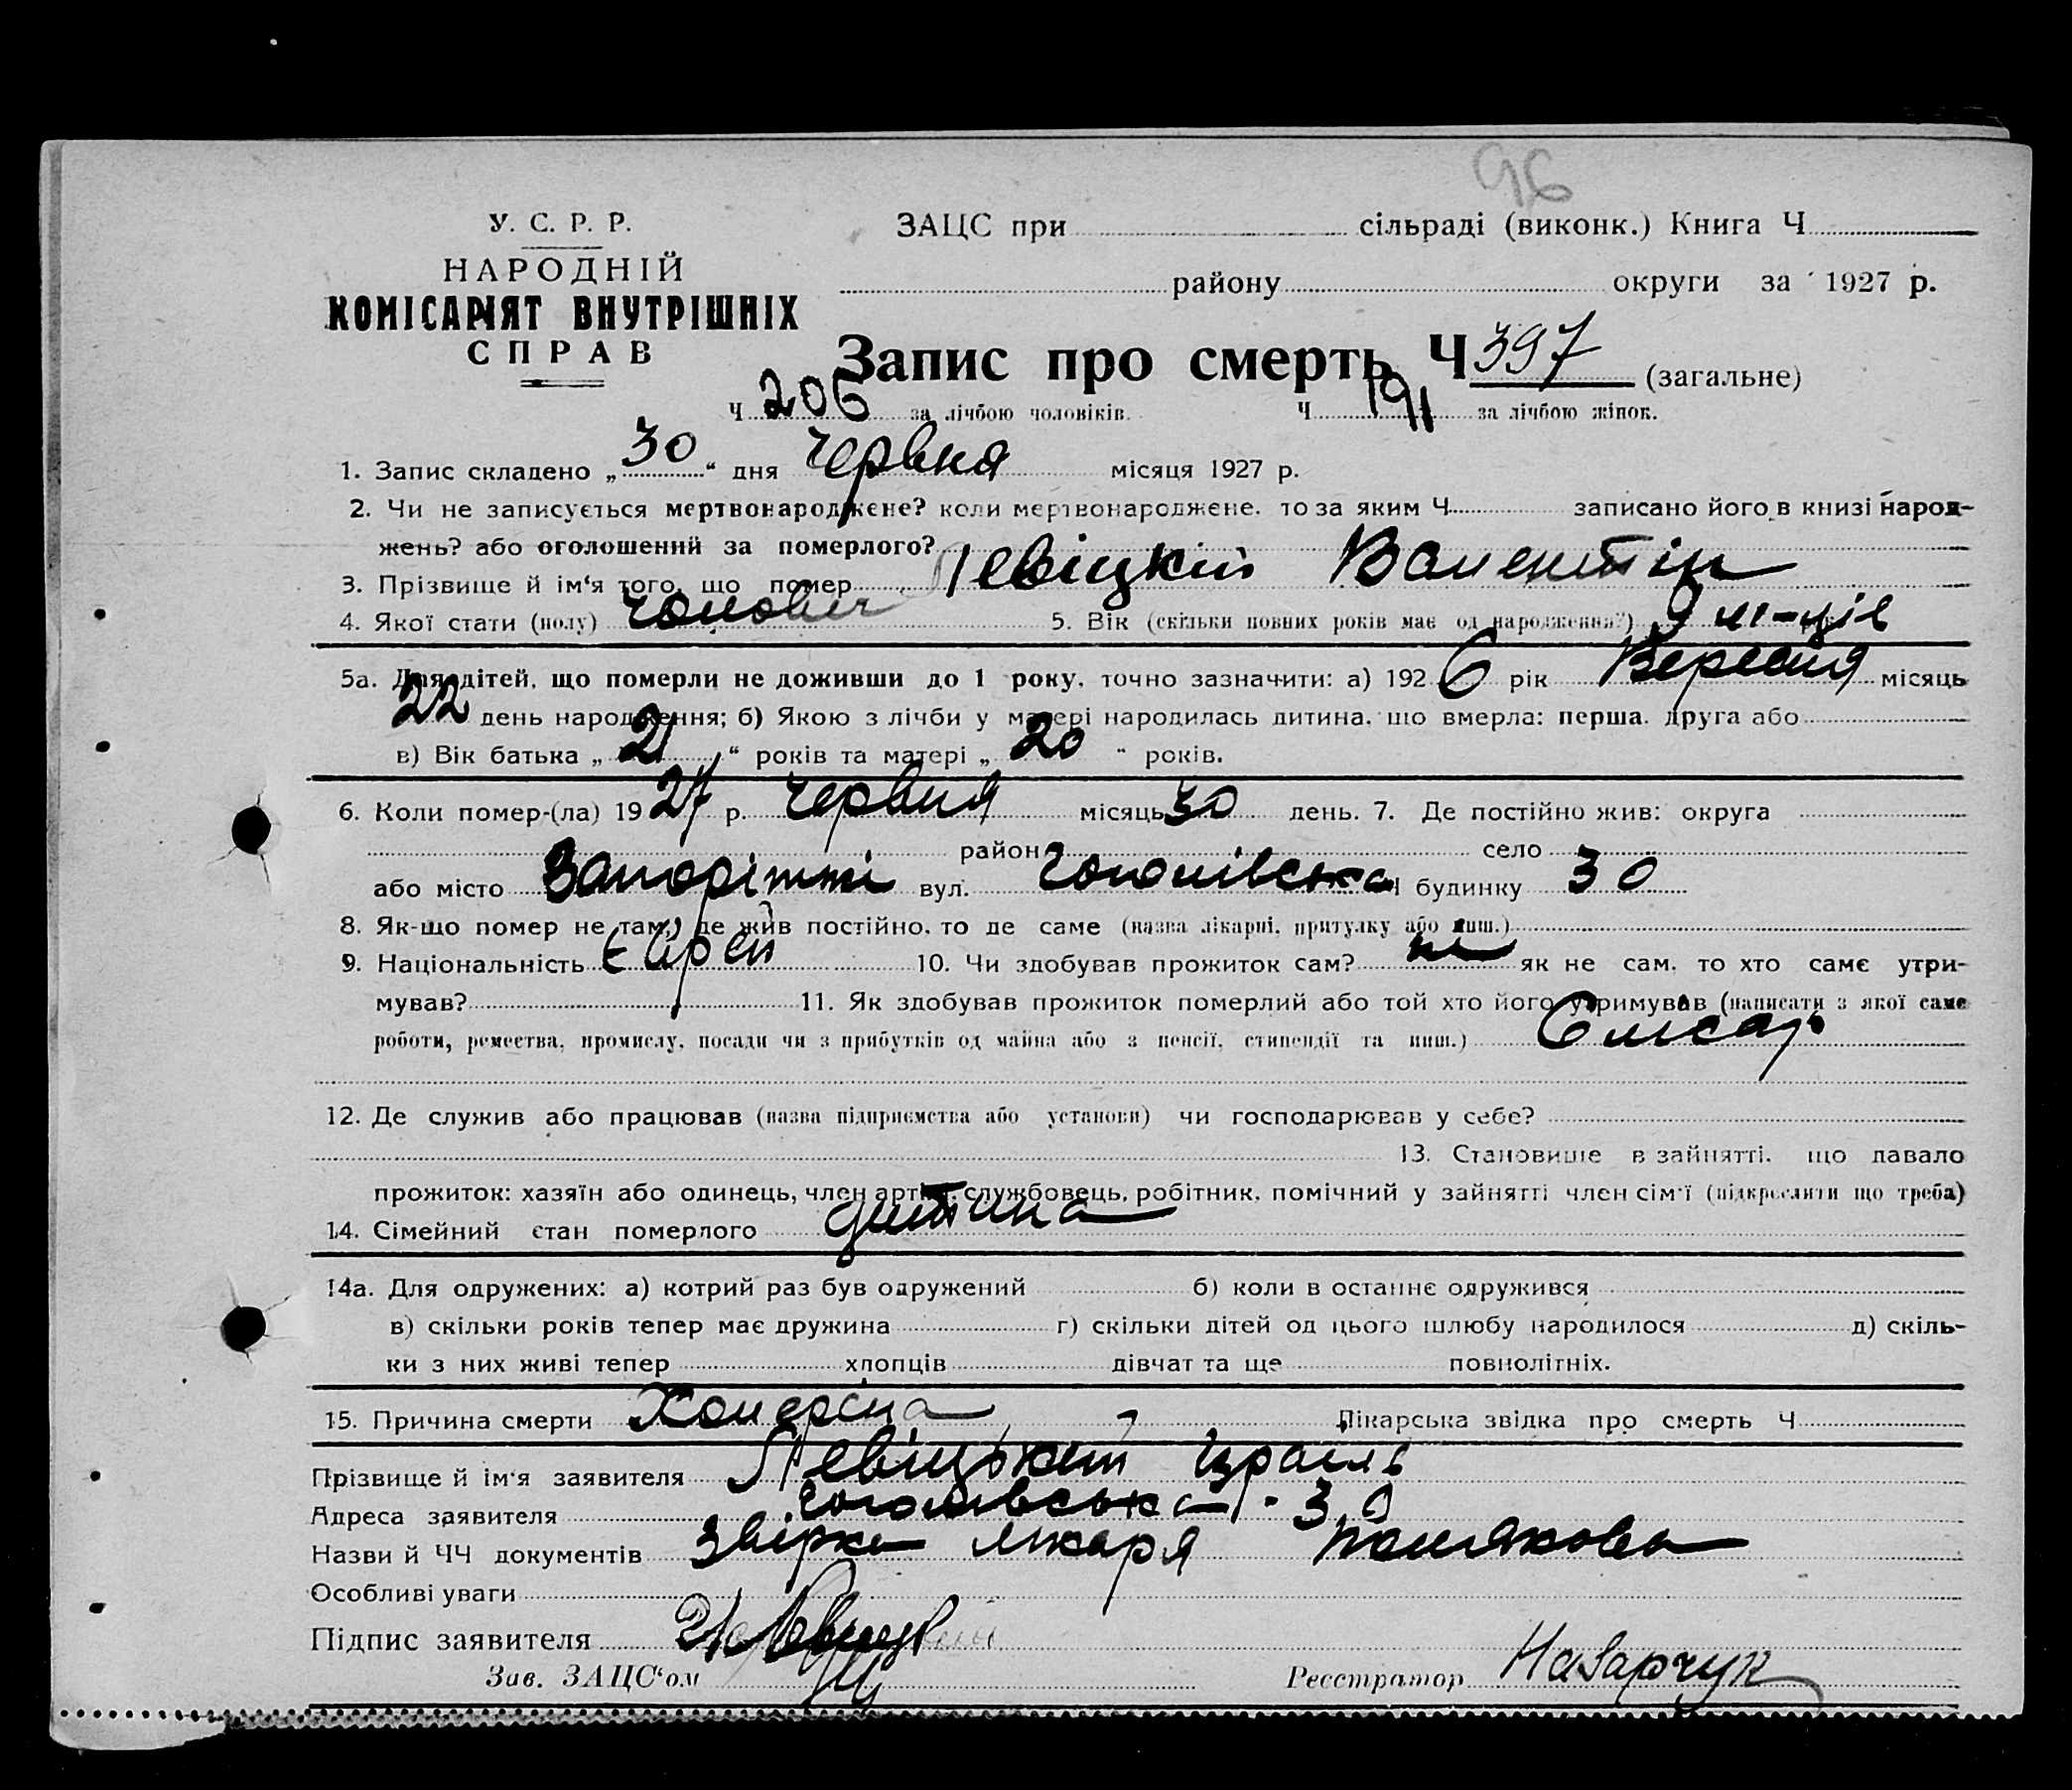 96
У. С. Р. Р.
НАРОДНІЙ
КОМІСАРІЯТ ВНУТРІШНІХ
СПРАВ
ЗАЦС при сільраді (виконк.) Книга Ч
району округи за 1927 р.
Запис про смерть Ч 397 (загальне)
Ч 206 за лічбою чоловіків. Ч 191 за лічбою жінок.
1. Запис складено „ 30 “ дня Червня місяця 1927 р.
2. Чи не записується мертвонароджене? коли мертвонароджене, то за яким Ч записано його в книзі народ-
жень? або оголошений за померлого?
3. Прізвище й ім‘я того, що помер Левіцкий Валентін
4. Якої стати (полу) чолович 5. Вік (скільки повних років має од народження?) 9 м-ців
5а. Для дітей, що померли не доживши до 1 року, точно зазначити: а) 192 6 рік Вересня місяць
22 день народження; б) Якою з лічби у матері народилась дитина, що вмерла: перша, друга або
в) Вік батька „ 21 “ років та матері „ 20 “ років.
6. Коли помер-(ла) 19 27 р. Червня місяць 30 день. 7. Де постійно жив: округа
район село
або місто Запоріжжі вул. Гоголівська будинку 30
8. Як-що помер не там, де жив постійно, то де саме (назва лікарні, притулку або инш.)
9. Національність Єврей 10. Чи здобував прожиток сам? ні як не сам, то хто саме утри-
мував? 11. Як здобував прожиток померлий або той хто його утримував (написати з якої саме
роботи, ремества, промислу, посади чи з прибутків од майна або з пенсії, стипендії та инш.) Слюсар
12. Де служив або працював (назва підприємства або установи) чи господарював у себе?
13. Становище в зайнятті, що давало
прожиток: хазяїн або одинець, член артілі, службовець, робітник, помічний у зайнятті член сім‘ї (підкреслити що треба)
14. Сімейний стан померлого дитина
14а. Для одружених: а) котрий раз був одружений б) коли в останнє одружився
в) скільки років тепер має дружина г) скільки дітей од цього шлюбу народилося д) скіль-
ки з них живі тепер хлопців дівчат та ще повнолітніх.
15. Причина смерти Холеріна Лікарська звідка про смерть Ч
Прізвище й ім‘я заявителя Левіцький Ізраіль
Адреса заявителя Гоголівська - 30
Назви й ЧЧ документів Звірка лікаря
Особливі уваги
Підпис заявителя
Зав. ЗАЦС‘ом Реєстратор Назарчук